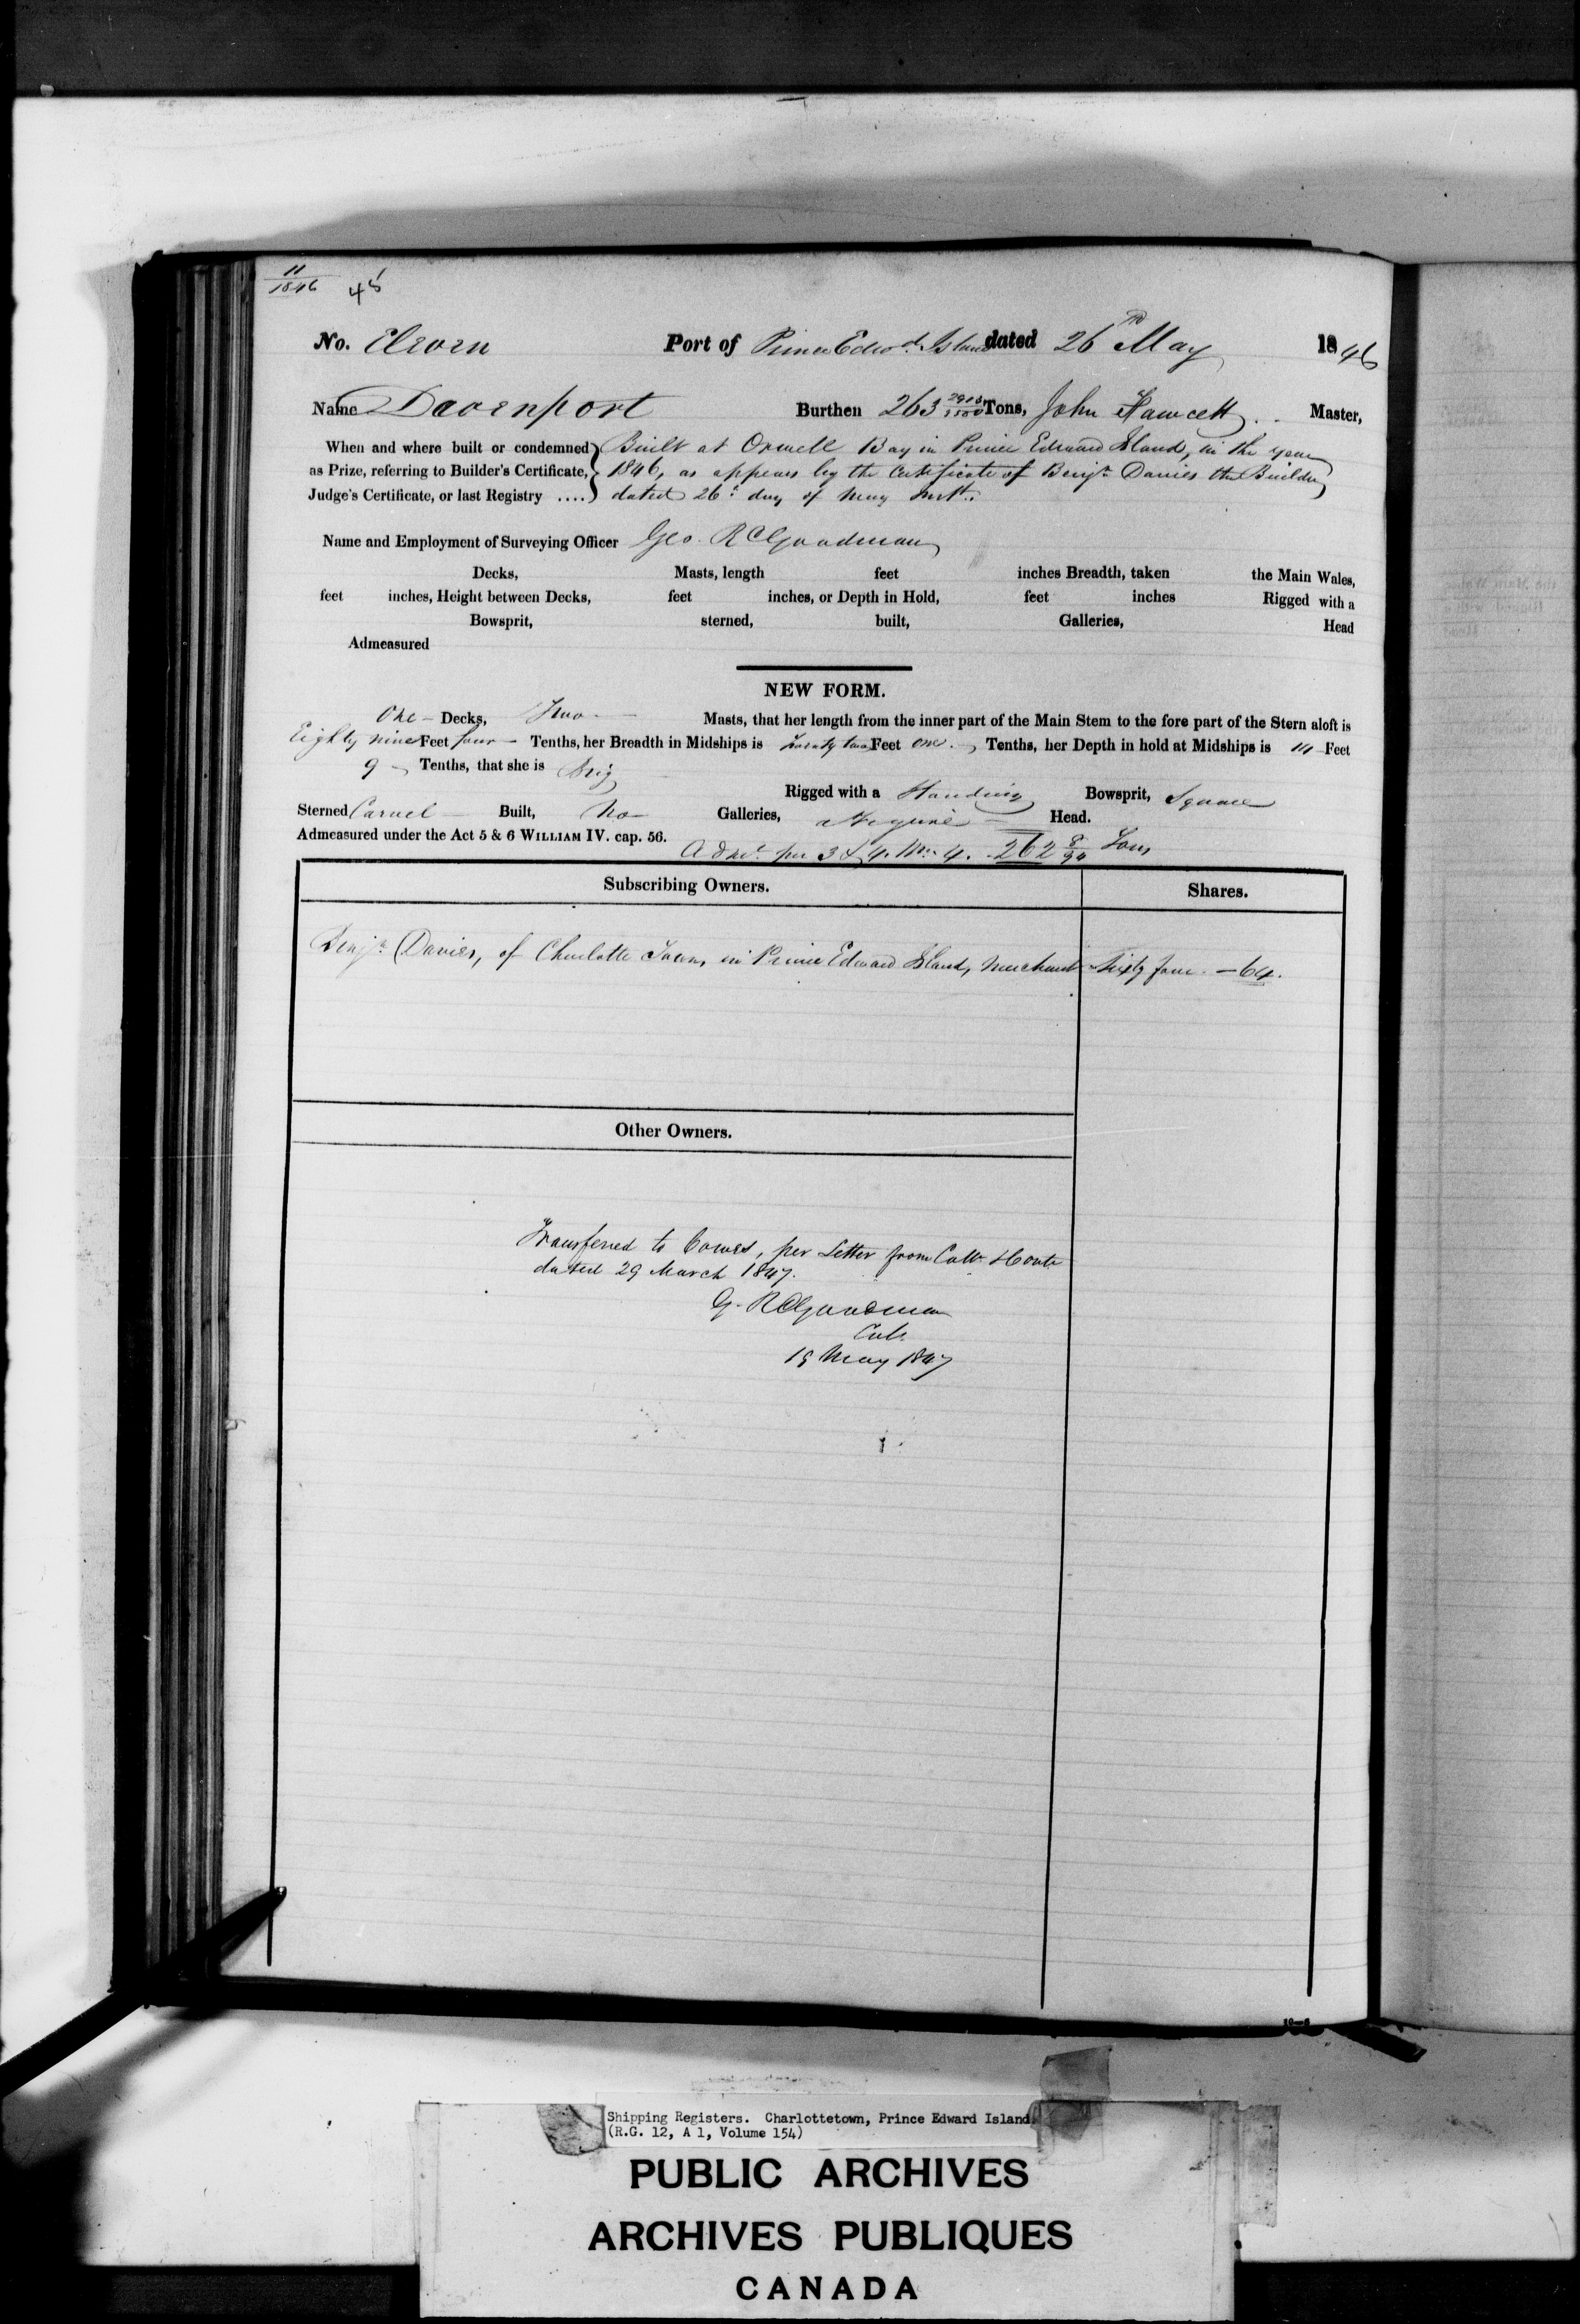 11
1846 45
No. Eleven Port of Prince Edwd. Island dated 26th May 1846
Name Davenport Burthen 263 2910/3500 Tons, John Fawcett Master,
When and where built or condemned Built at Orwell Bay in Prince Edward Island, in the year
as Prize, referring to Builder's Certificate, 1846, as appears by the Certificate of Benjn. Davies the Builder
Judge's Certificate, or last Registry .... dated 26th day of May Inst.
Name and Employment of Surveying Officer Geo. R Goodman
Decks, Masts, length feet inches Breadth, taken the Main Wales,
feet inches, Height between Decks, feet inches, or Depth in Hold, feet inches Rigged with a
Bowsprit, sterned, built, Galleries, Head
Admeasured
NEW FORM.
One Decks, Two Masts, that her length from the inner part of the Main Stem to the fore part of the Stern aloft is
Eighty nine Feet four Tenths, her Breadth in Midships is Twenty two Feet one Tenths, her Depth in hold at Midships is 14 Feet
9 Tenths, that she is Brig
Rigged with a Standing Bowsprit, Square
Sterned Carvel Built, No Galleries, a Figure Head.
Admeasured under the Act 5 & 6 WILLIAM IV. cap. 56.
Adm. per 3 & 4 Wm. 4. 262 8/94 Tons
Subscribing Owners. Shares.
Benjn. Davies, of Charlotte Town, in Prince Edward Island, Merchant Sixty four — 64.
Other Owners.
Transferred to Cowes, per Letter from Custm. House
dated 29 March 1847.
G. R Goodman
19 May 1847
10—6
Shipping Registers. Charlottetown, Prince Edward Island
(R.G. 12, A 1, Volume 154)
PUBLIC ARCHIVES
ARCHIVES PUBLIQUES
CANADA